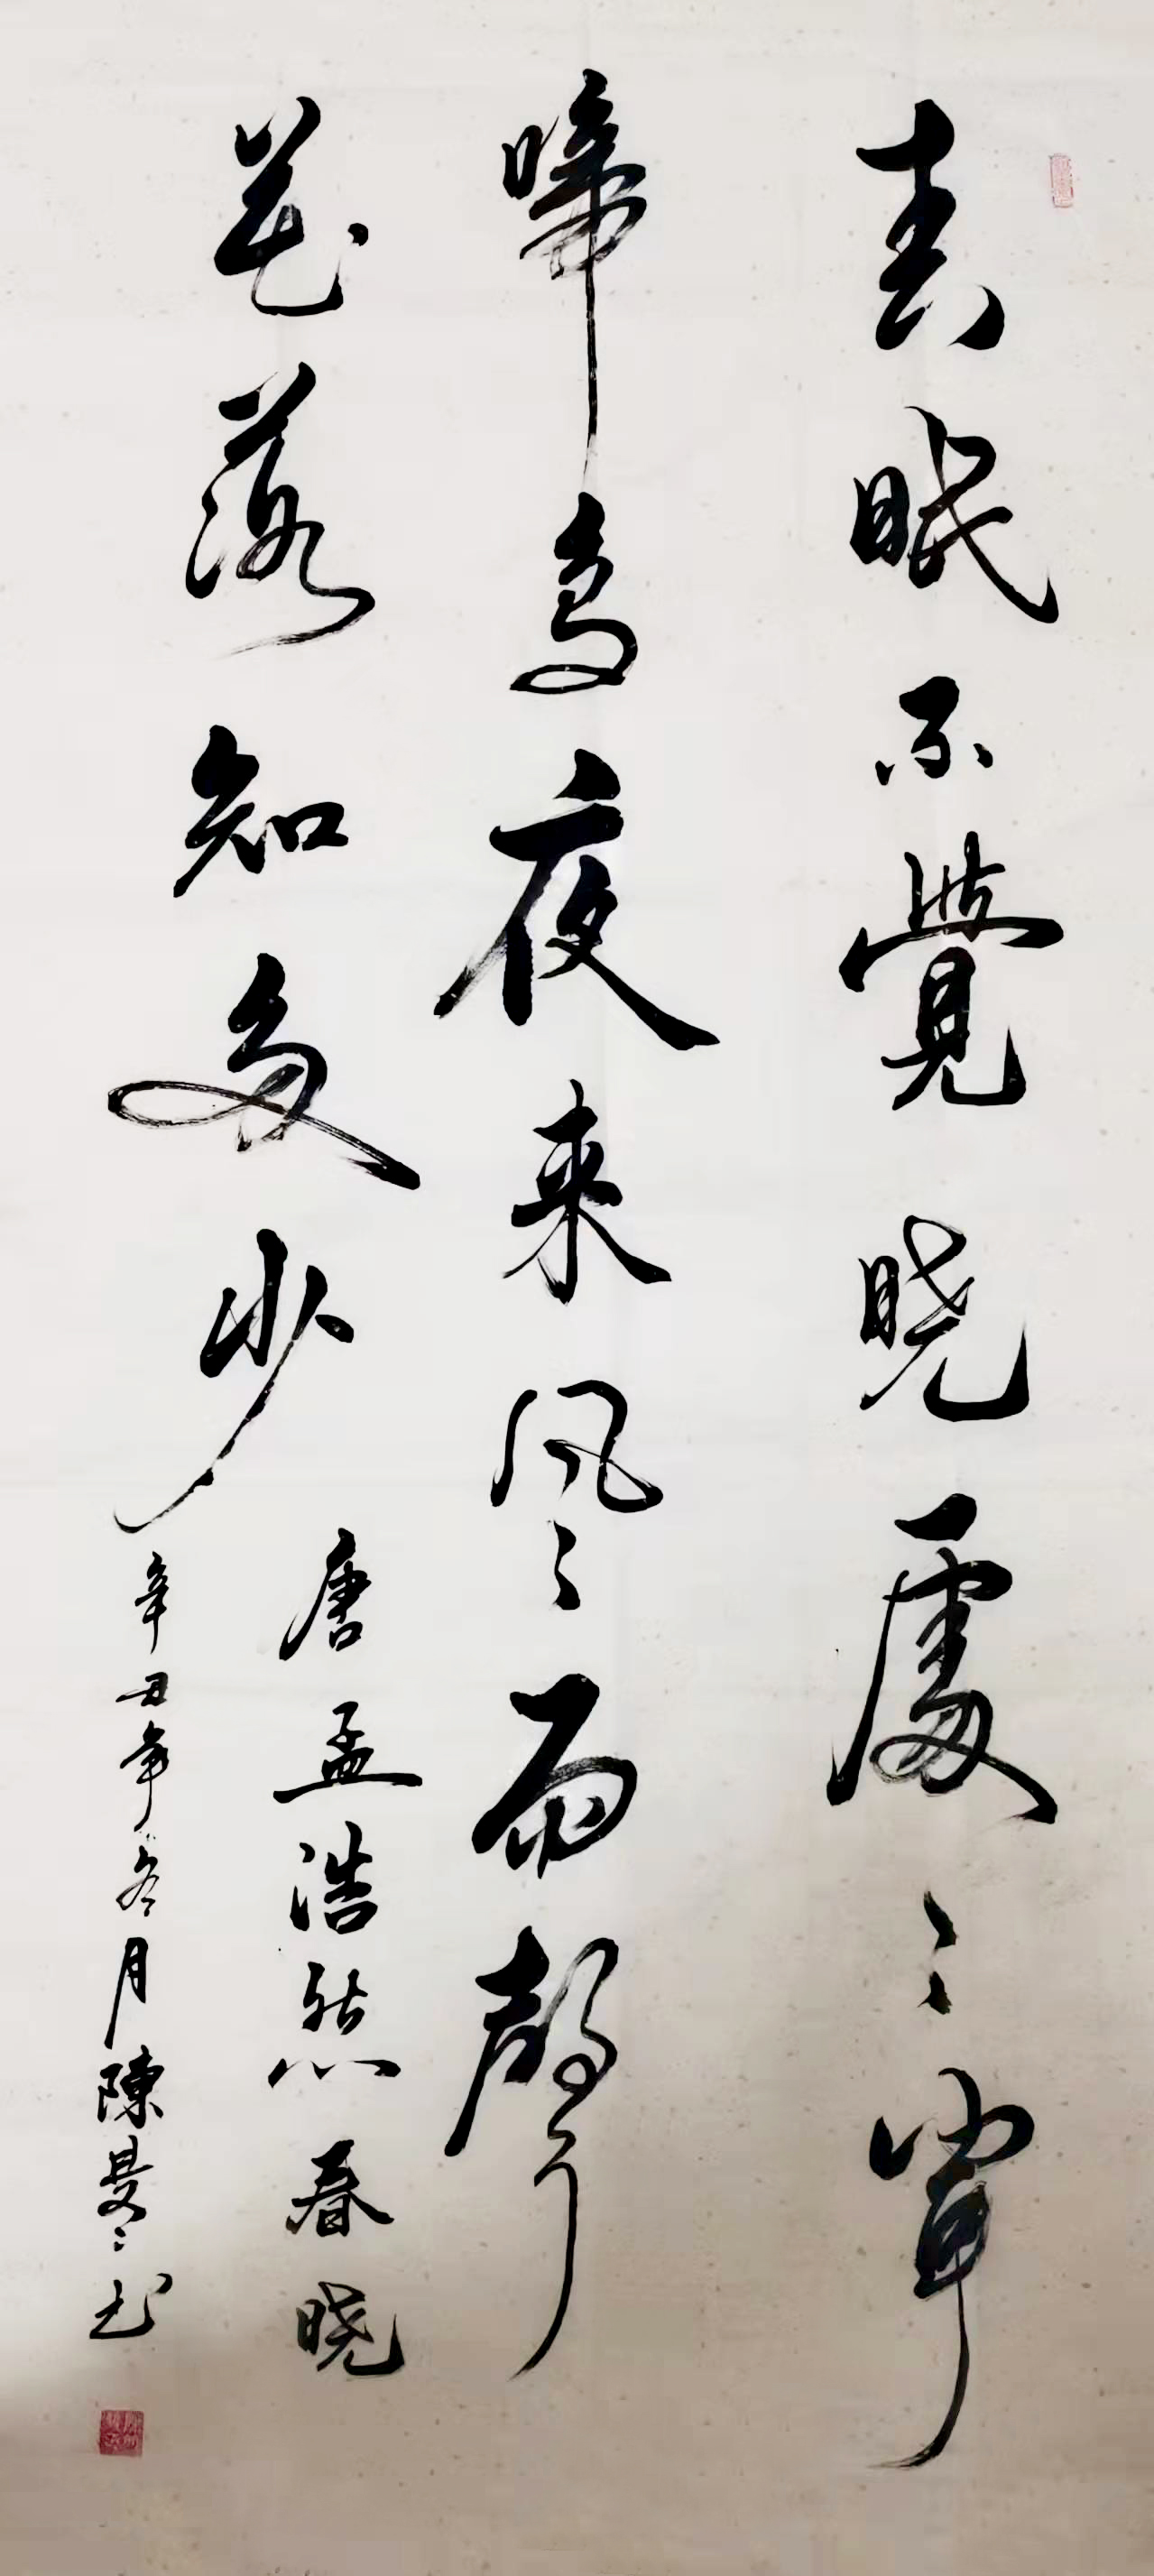 春眠不覺晓處〻聞
啼鸟夜来风〻雨聲
花落知多少
唐孟浩然春晓
辛丑年冬月陳曼〻书